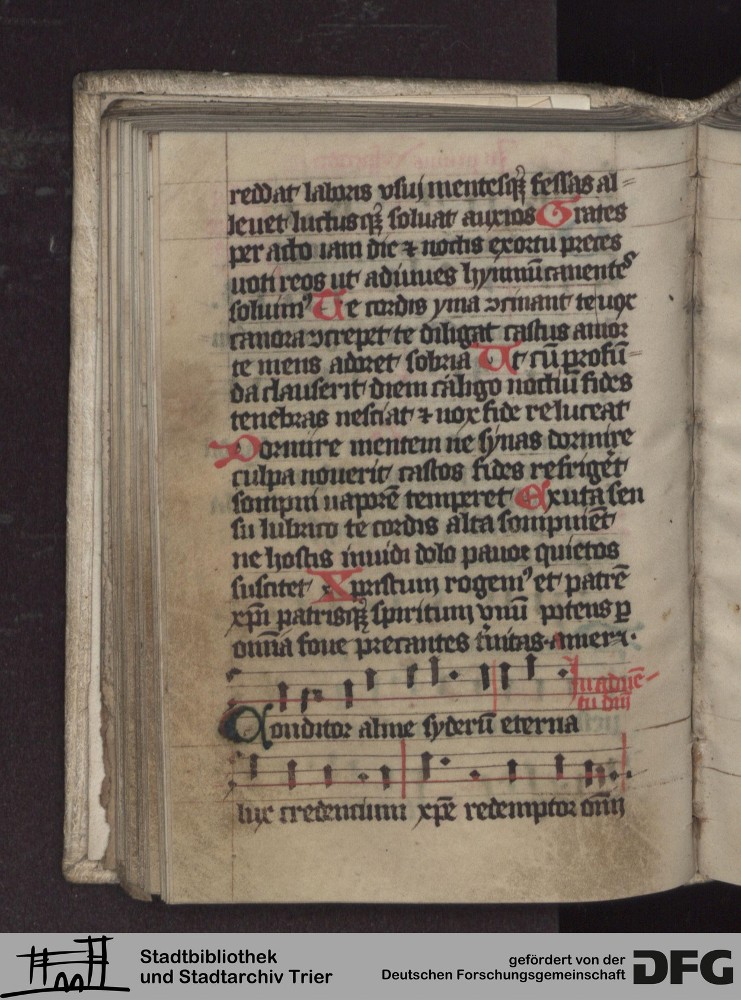 reddat laboris vsuj mentesqꝫ fessas al=
leuet luctusqꝫ soluat anxios Grates
per acto iam die ⁊ noctis exortu preces
uoti reos ut adiuues hymnū canentes
soluimꝰ Te cordis yma ↄcinant te uox
canora ↄcrepet te diligat castus amor
te mens adoret sobria Ut cū ꝓfū=
da clauserit diem caligo noctiū fides
tenebras nesciat ⁊ nox fide reluceat
Dormire mentem ne synas dormire
culpa nouerit castos fides refrigēt
sompni uaporē temperet Exuta sen
su lubrico te cordis alta sompniēt
ne hostis inuidi dolo pauor quietos
suscitet Xpristum rogemꝰ et patrē
xp̄i patrisqꝫ spiritum vnū potens ꝑ
om̄ia foue precantes t̄nitas amen.
In aduē-
tu dn̄j
Conditor alme syderū eterna
lux credencium xp̄e redemptor om̄nj
Stadtbibliothek
und Stadtarchiv Trier
gefördert von der
Deutschen Forschungsgemeinschaft
DFG